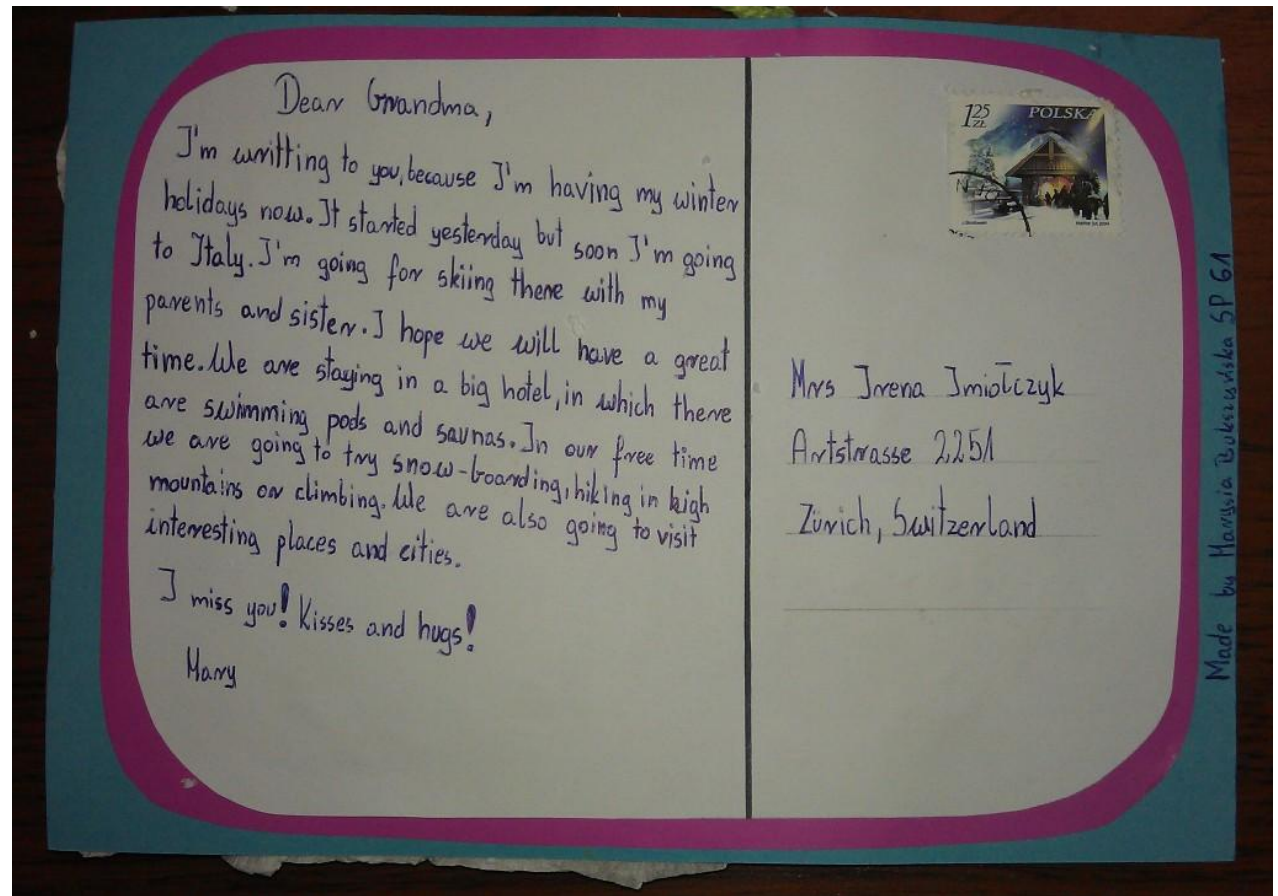 Dear Grandma,
I'm writting to you, because I'm having my winter
holidays now. It started yesterday but soon I'm going
to Italy. I'm going for skiing there with my
parents and sister. I hope we will have a great
time. We are staying in a big hotel, in which there
are swimming pods and saunas. In our free time
we are going to try snow-boarding, hiking in high
mountains or climbing. We are also going to visit
interesting places and cities.
I miss you! Kisses and hugs!
Mary
125
ZŁ
POLSKA
Mrs Irena Imiołczyk
Artstrasse 2251
Zürich, Switzerland
Made by Marysia Bukszewska SP 61